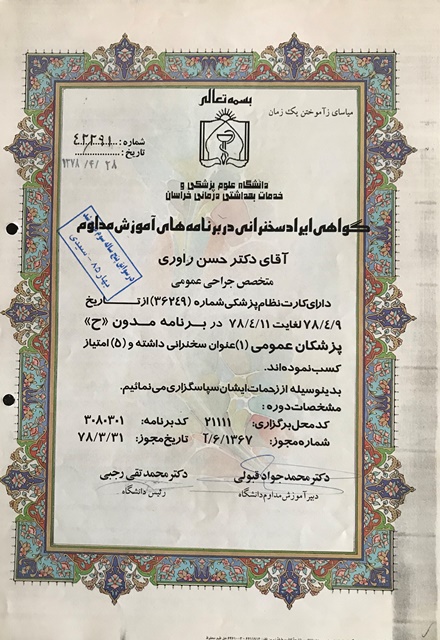 بسمه تعالی
میاسای ز آموختن یک زمان
شماره: ۴۲۲۹۱
تاریخ: ۱۳۷۸/۴/۲۸
دانشگاه علوم پزشکی و
خدمات بهداشتی درمانی خراسان
گواهی ایراد سخنرانی در برنامه های آموزش مداوم
آقای دکتر حسن راوری
متخصص جراحی عمومی
دارای کارت نظام پزشکی شماره (۳۶۲۴۹) از تاریخ
۷۸/۴/۹ لغایت ۷۸/۴/۱۱ در برنامه مدون «ح»
پزشکان عمومی (۱) عنوان سخنرانی داشته و (۵) امتیاز
کسب نموده اند.
بدینوسیله از زحمات ایشان سپاسگزاری می نمائیم.
مشخصات دوره:
کد محل برگزاری: ۲۱۱۱۱ کد برنامه: ۳۰۸۰۳۰۱
شماره مجوز: ۱۳۶۷/۶/آ تاریخ مجوز: ۷۸/۳/۳۱
دکتر محمد جواد قبولی دکتر محمد تقی رجبی
دبیر آموزش مداوم دانشگاه رئیس دانشگاه